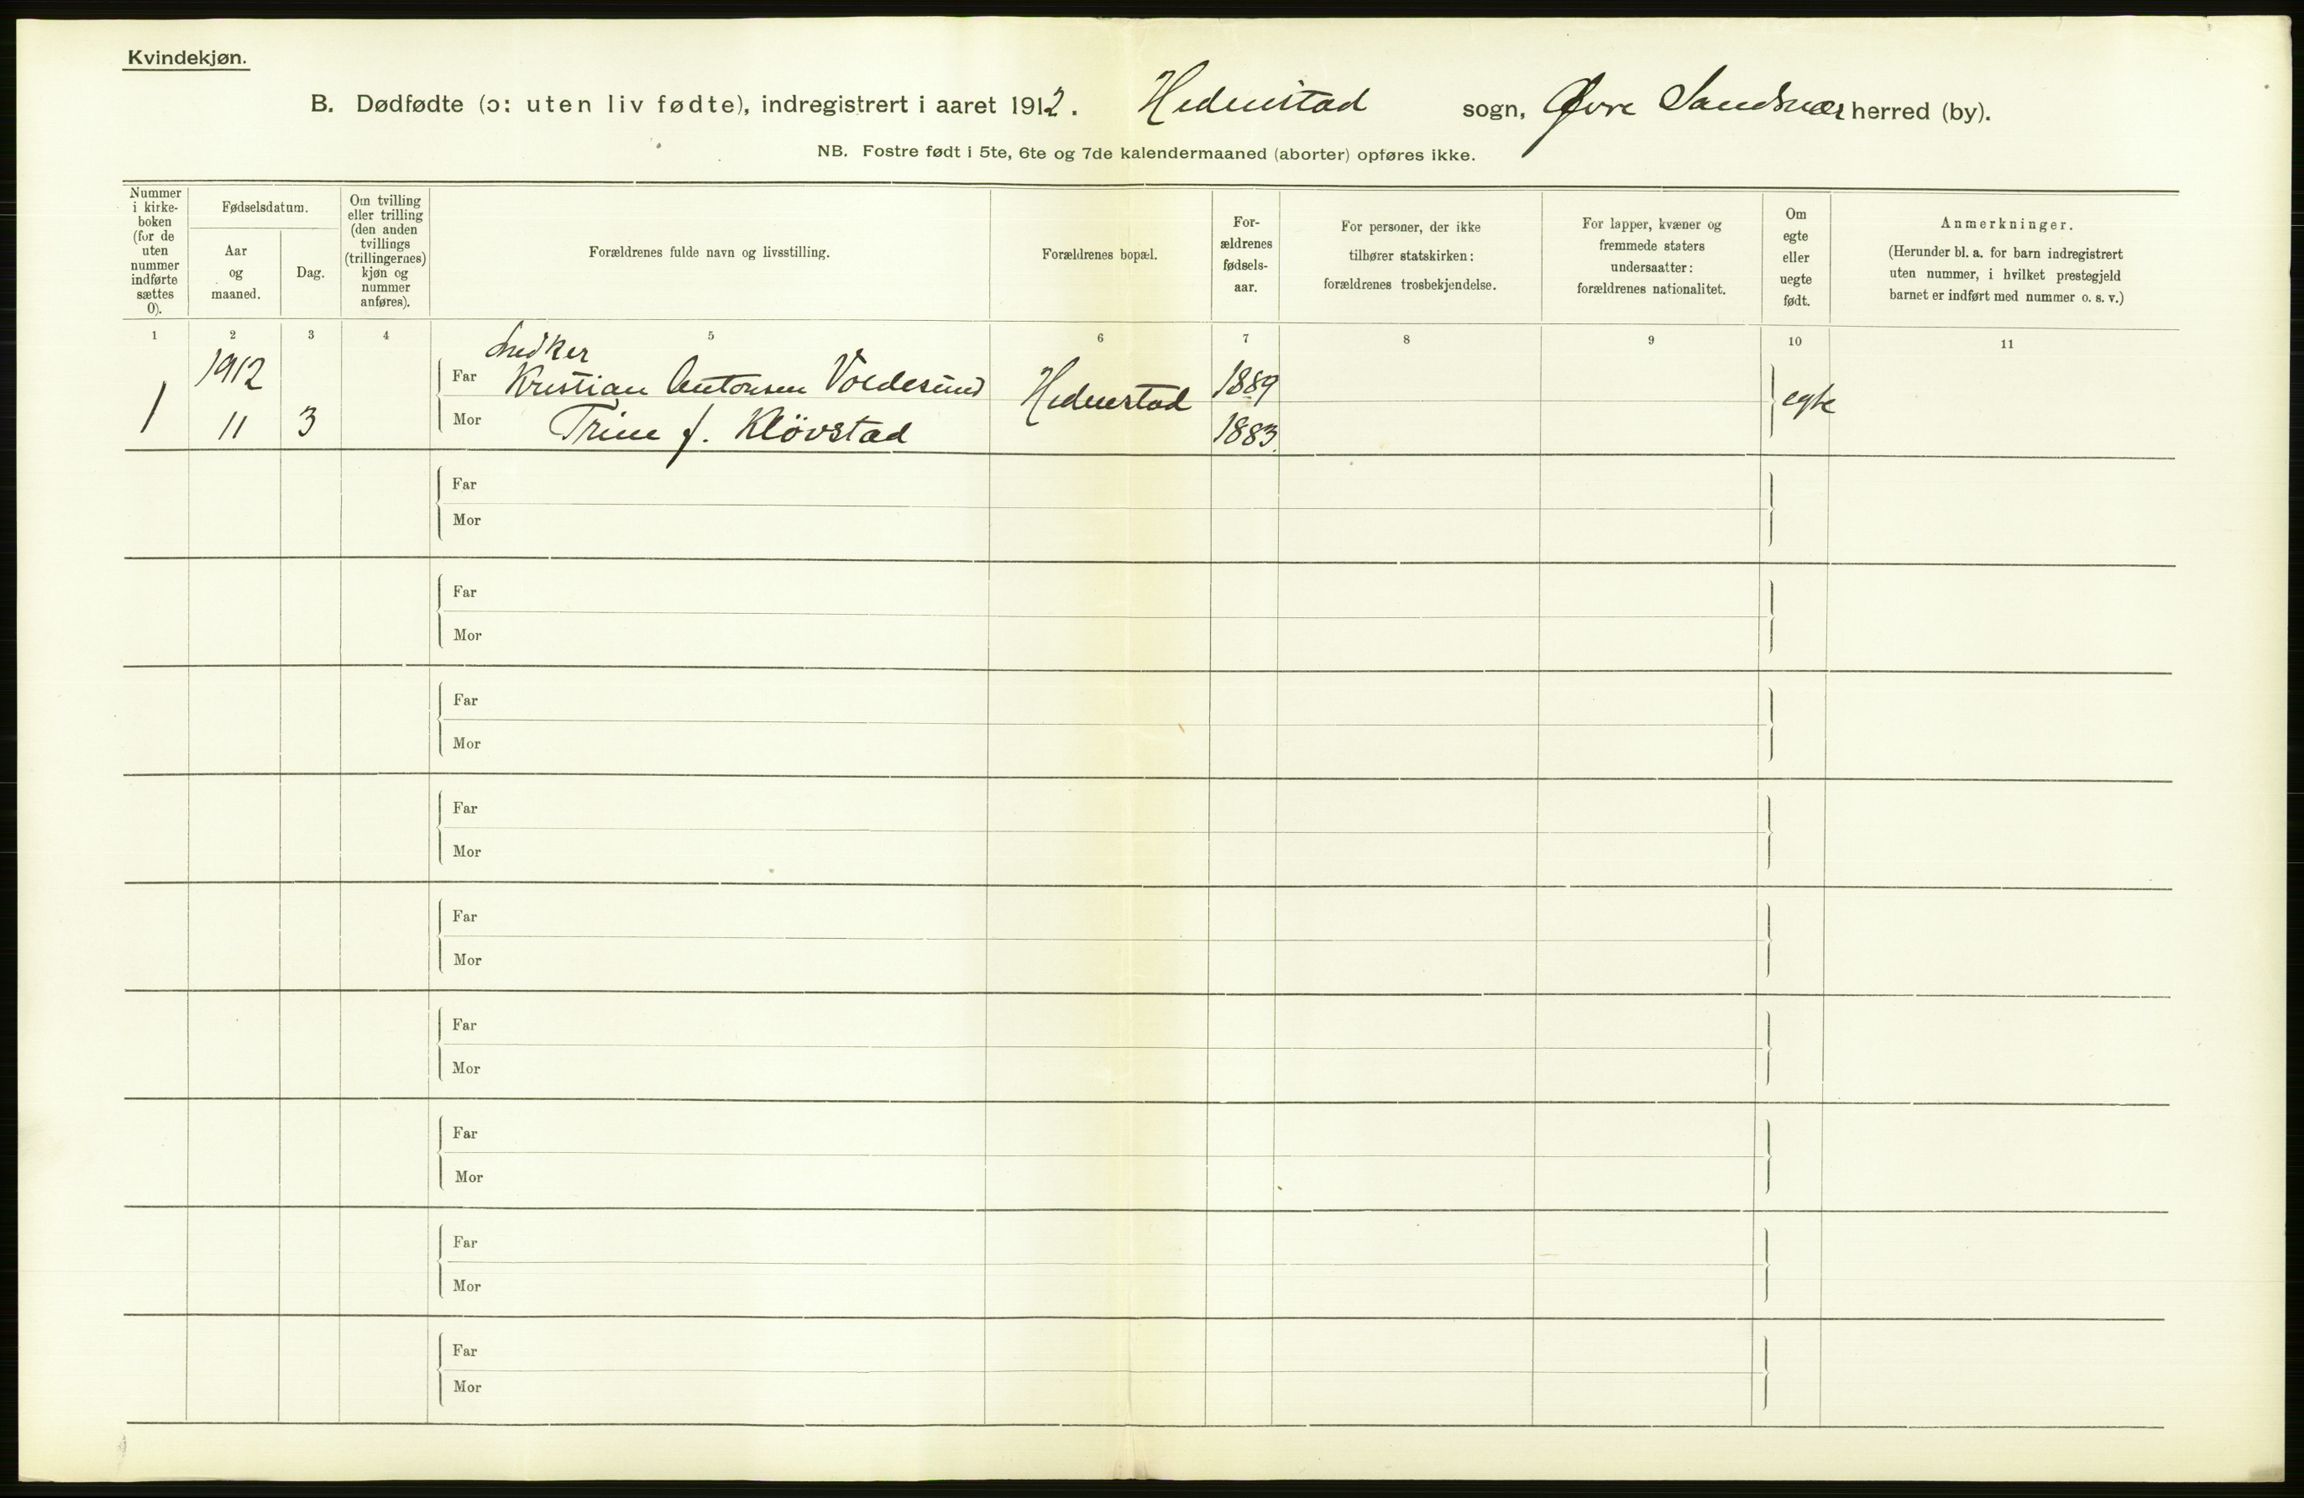 Kvindekjøn.
B. Dødfødte (ɔ: uten liv fødte), indregistrert i aaret 1912. Hedenstad sogn, Øvre Sandsvær herred (by).
NB. Fostre født i 5te, 6te og 7de kalendermaaned (aborter) opføres ikke.
Nummer
i kirke-
boken
(for de
uten
nummer
indførte
sættes
0).
Fødselsdatum.
Aar
og
maaned.
Dag.
Om tvilling
eller trilling
(den anden
tvillings
(trillingernes)
kjøn og
nummer
anføres).
Forældrenes fulde navn og livsstilling.
Forældrenes bopæl.
For-
ældrenes
fødsels-
aar.
For personer, der ikke
tilhører statskirken:
forældrenes trosbekjendelse.
For lapper, kvæner og
fremmede staters
undersaatter:
forældrenes nationalitet.
Om
egte
eller
uegte
født.
Anmerkninger.
(Herunder bl. a. for barn indregistrert
uten nummer, i hvilket prestegjeld
barnet er indført med nummer o. s. v.)
1 2 3 4 5 6 7 8 9 10 11
Snedker
1912 Far Kristian Antonsen Voldesund Hedenstad 1889 egte
1 11 3 Mor Trine f. Kløvstad 1883.
Far
Mor
Far
Mor
Far
Mor
Far
Mor
Far
Mor
Far
Mor
Far
Mor
Far
Mor
Far
Mor